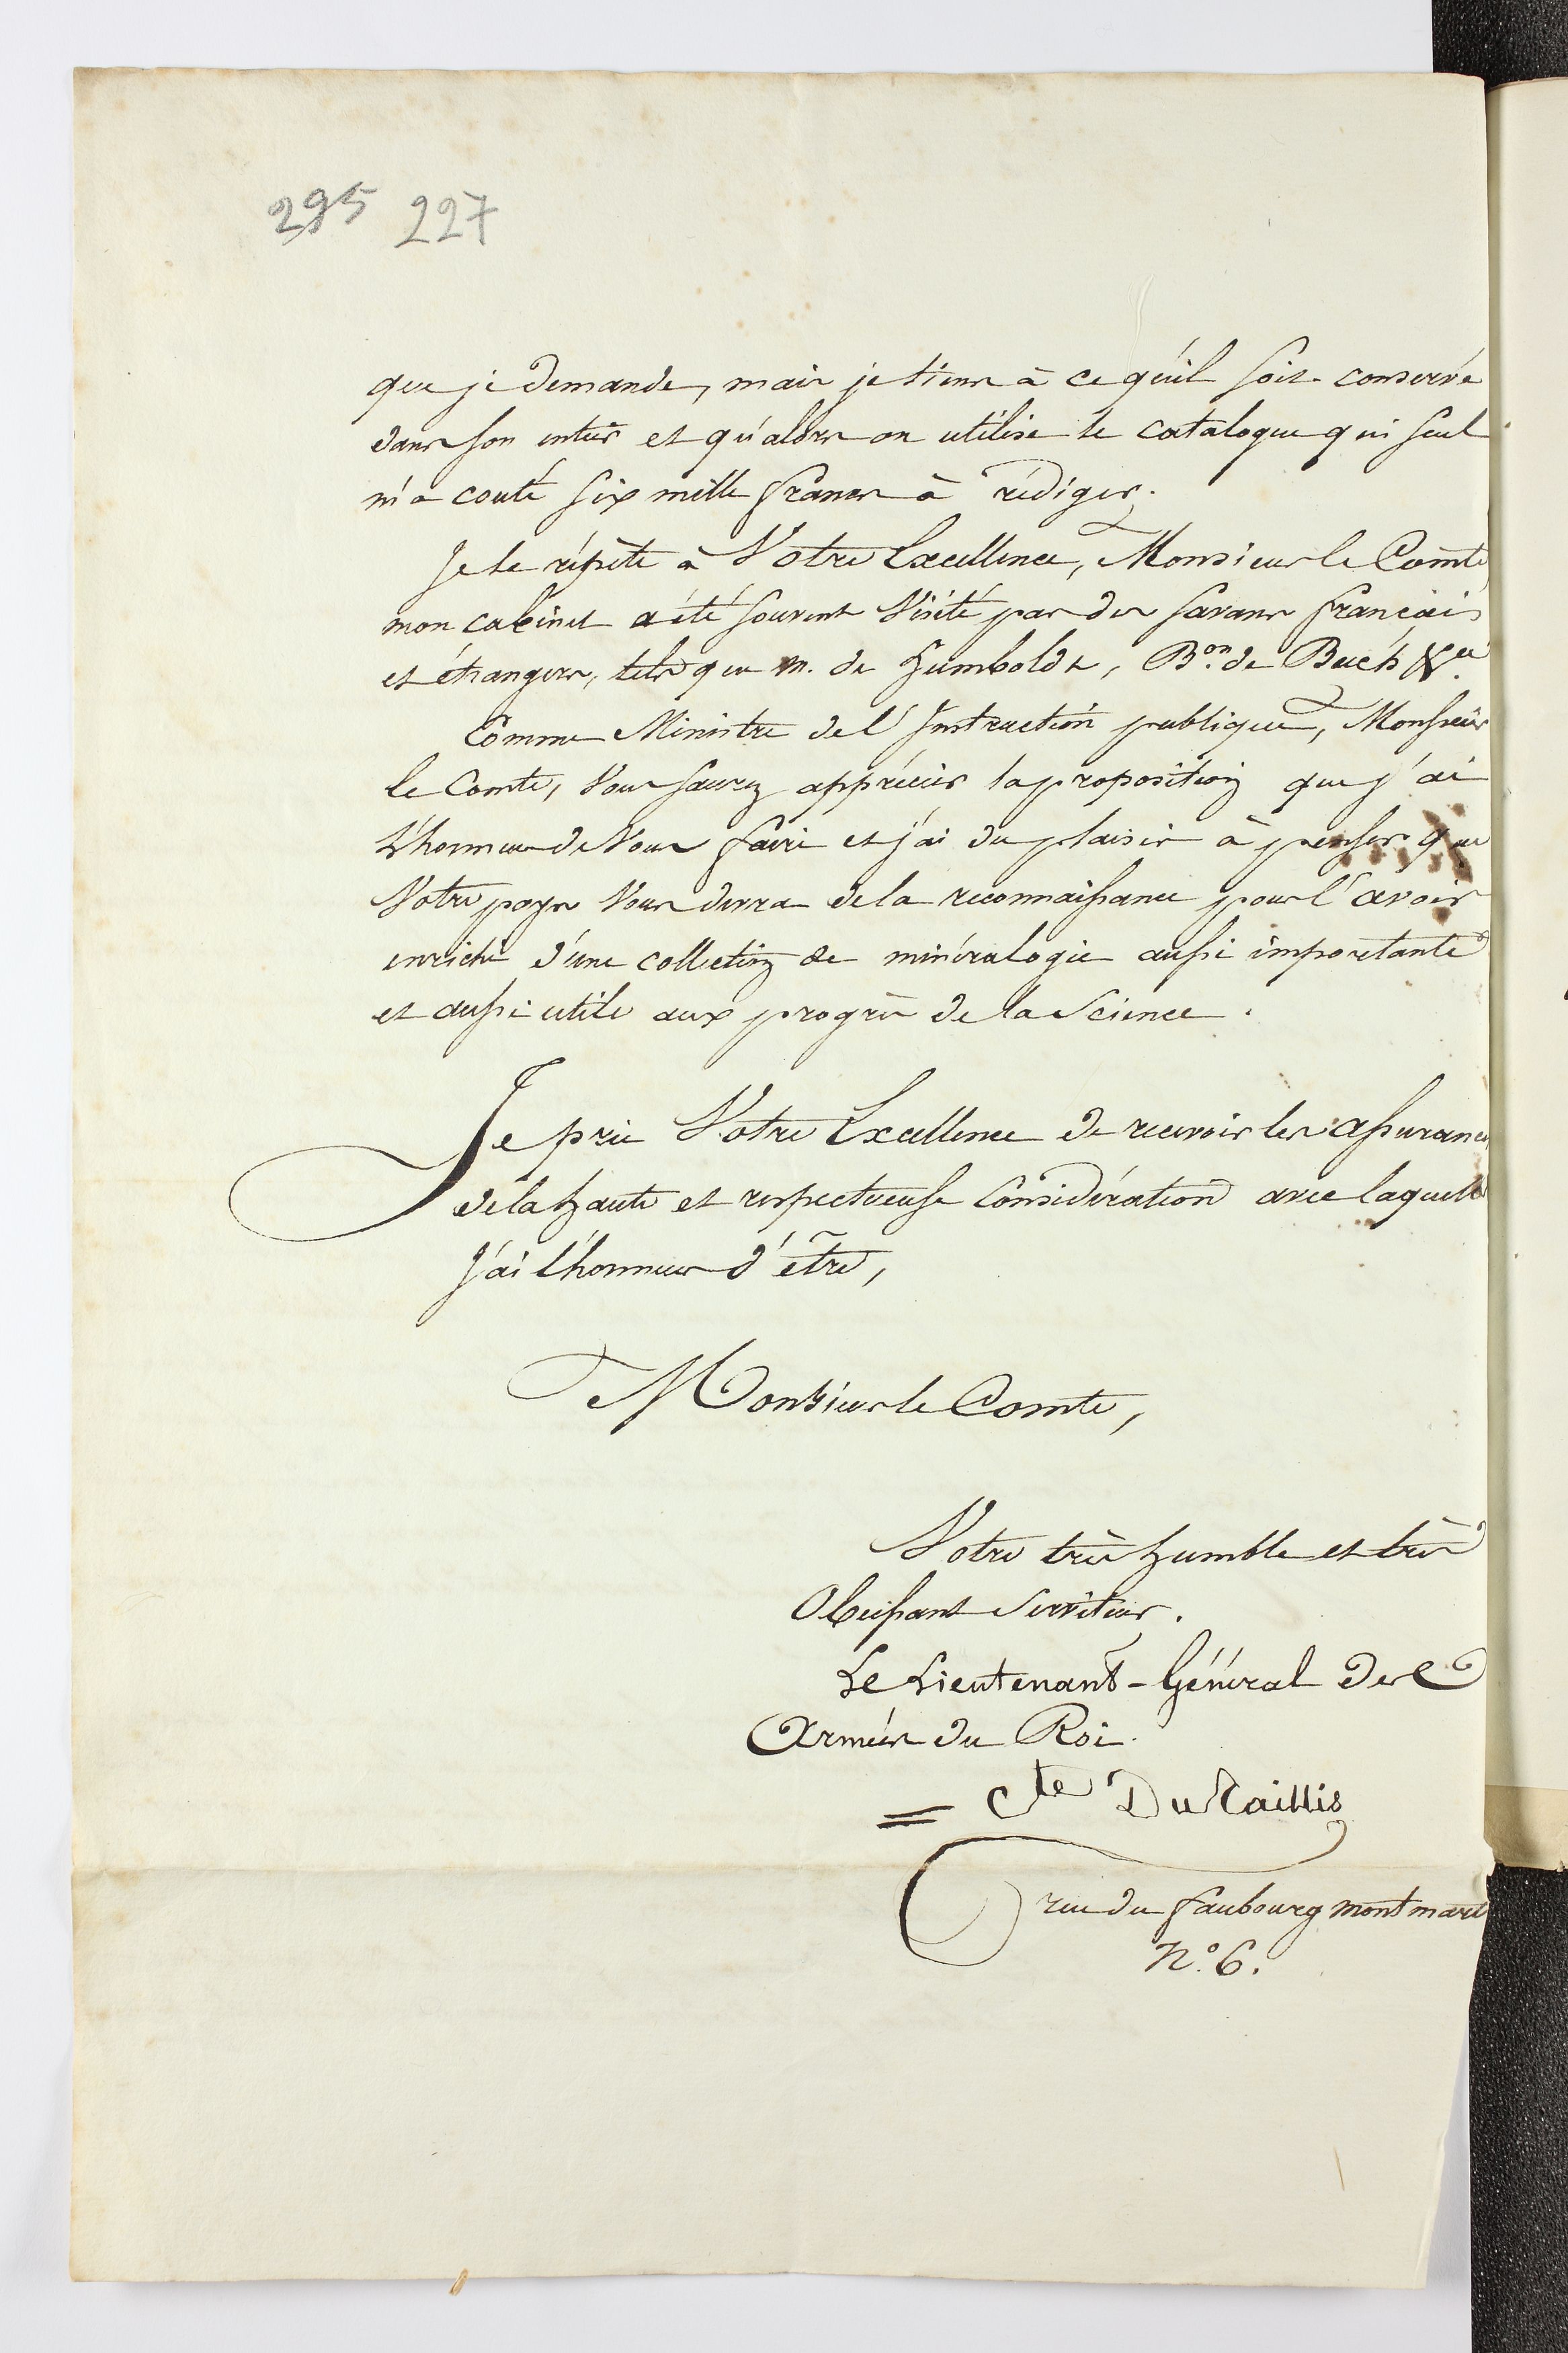 295 227
que je demande, mais je tiens à ce qu'il soit conservé
dans son entier et qu'alors on utilise le catalogue qui seul
m'a couté six mille francs à rédiger.
Je le répète à Votre Excellence, Monsieur le Comte
mon cabinet a été souvent Visité par des savans français
et étrangers, tels que M. de Humboldt, Bon. de Buch &a.
Comme Ministre de l'Instruction publique, Monsieur
le Comte, Vous saurez apprécier la proposition que j'ai
L'honneur de Vous faire et j'ai du plaisir à penser que
Votre pays Vous devra de la reconnaissance pour l'avoir
enrichi d'une collection de minéralogie aussi importante
et aussi utile aux progrès de la Science.
Je prie Votre Excellence de recevoir les assurances
de la haute et respectueuse Considération avec laquelle
J'ai l'honneur d'être,
Monsieur le Comte,
Votre très humble et très
Obeissant Serviteur.
Le Lieutenant-Général des
Armées du Roi.
= Cte DuTaillis
rue du faubourg montmart
No. 6.